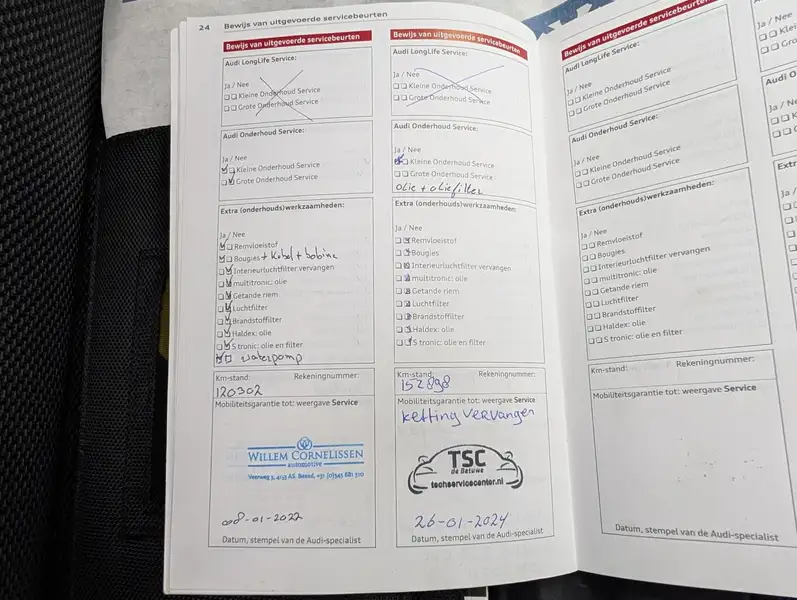 24 Bewijs van uitgevoerde servicebeurten
Bewijs van uitgevoerde servicebeurten
Audi LongLife Service:
Ja / Nee
Kleine Onderhoud Service
Grote Onderhoud Service
Audi Onderhoud Service:
Ja / Nee
Kleine Onderhoud Service
Grote Onderhoud Service
Extra (onderhouds)werkzaamheden:
Ja / Nee
Remvloeistof
Bougies + Kabel + bobine
Interieurluchtfilter vervangen
multitronic: olie
Getande riem
Luchtfilter
Brandstoffilter
Haldex: olie
S tronic: olie en filter
waterpomp
Km-stand: Rekeningnummer:
120302
Mobiliteitsgarantie tot: weergave Service
WILLEM CORNELISSEN
automotive
08-01-2022
Datum, stempel van de Audi-specialist
Bewijs van uitgevoerde servicebeurten
Audi LongLife Service:
Ja / Nee
Kleine Onderhoud Service
Grote Onderhoud Service
Audi Onderhoud Service:
Ja / Nee
Kleine Onderhoud Service
Grote Onderhoud Service
olie + oliefilter
Extra (onderhouds)werkzaamheden:
Ja / Nee
Remvloeistof
Bougies
Interieurluchtfilter vervangen
multitronic: olie
Getande riem
Luchtfilter
Brandstoffilter
Haldex: olie
S tronic: olie en filter
Km-stand: Rekeningnummer:
152898
Mobiliteitsgarantie tot: weergave Service
ketting vervangen
TSC
de Betuwe
techservicecenter.nl
26-01-2024
Datum, stempel van de Audi-specialist
Bewijs van uitgevoerde servicebeurten
Audi LongLife Service:
Ja / Nee
Kleine Onderhoud Service
Grote Onderhoud Service
Audi Onderhoud Service:
Ja / Nee
Kleine Onderhoud Service
Grote Onderhoud Service
Extra (onderhouds)werkzaamheden:
Ja / Nee
Remvloeistof
Bougies
Interieurluchtfilter vervangen
multitronic: olie
Getande riem
Luchtfilter
Brandstoffilter
Haldex: olie
S tronic: olie en filter
Km-stand: Rekeningnummer:
Mobiliteitsgarantie tot: weergave Service
Datum, stempel van de Audi-specialist
Ja /
Audi O
Ja / N
Extr
Ja /